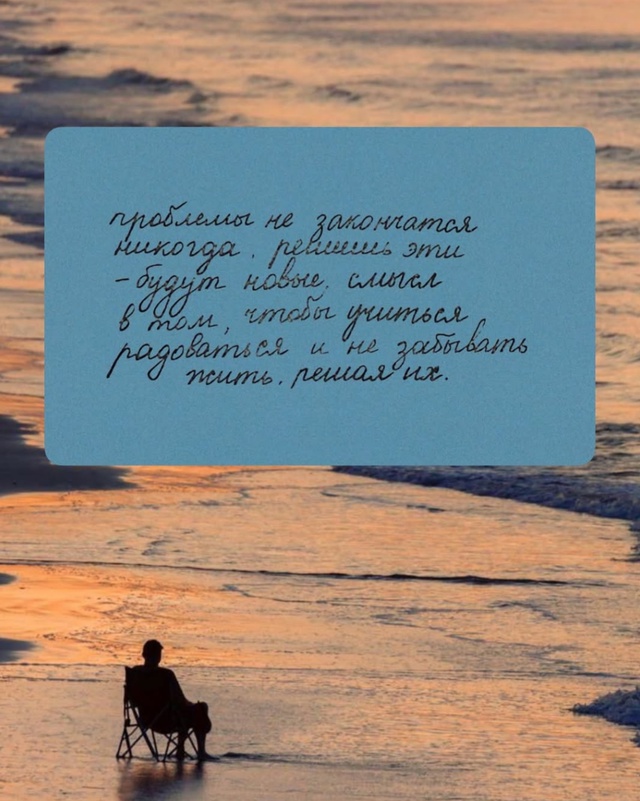 проблемы не закончатся
никогда. решишь эти
– будут новые. смысл
в том, чтобы учиться
радоваться и не забывать
жить, решая их.